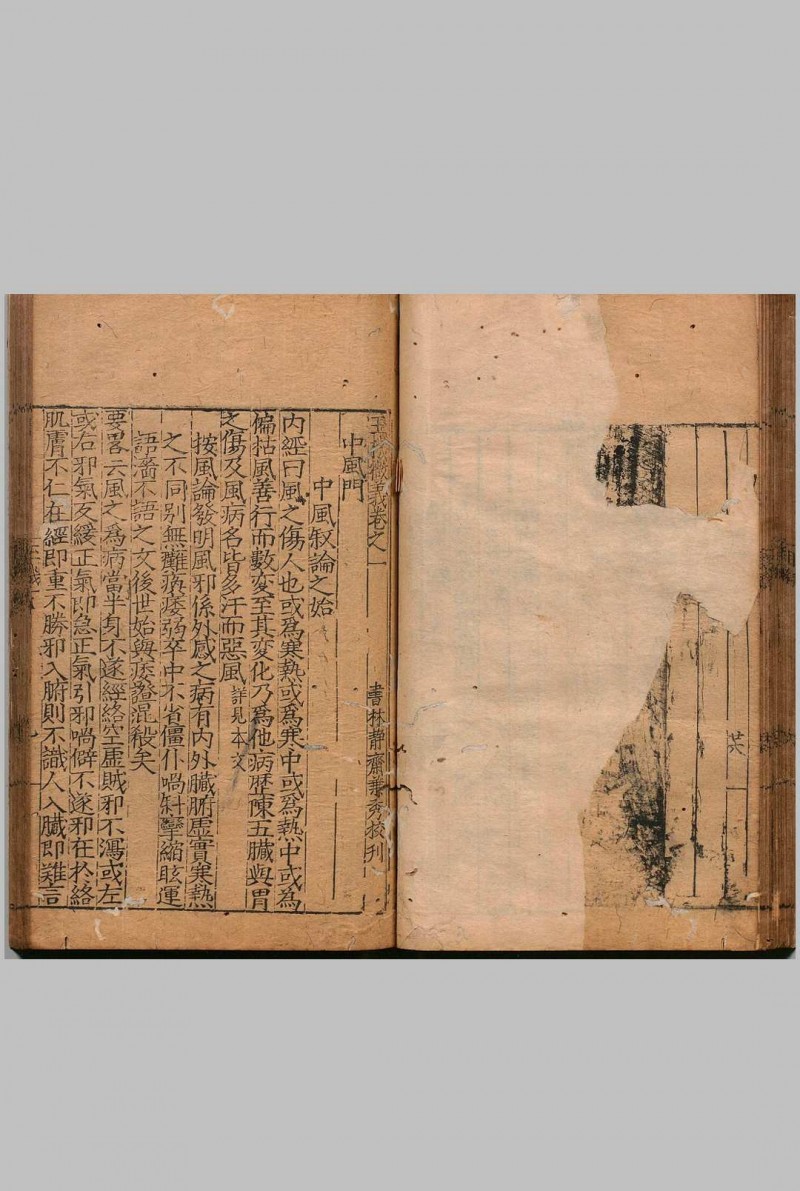 玉機微義卷之一　書林靜齋
校刊
中風門
中風叙論之始
内經曰風之傷人也或爲寒熱或爲寒中或爲熱中或爲
偏枯風善行而數変至其変化乃爲他病歴陳五臓與胃
之傷及風病名皆多汗而惡風詳見本文
按風論發明風邪係外感之病有内外臓腑虚實寒熱
之不同别無癱瘓痿弱卒中不省僵仆喎斜攣縮眩運
語濇不語之文後世始與痿證混殽矣
要畧云風之爲病當半身不遂經絡空虚賊邪不瀉或左
或右邪氣反緩正氣即急正氣引邪喎僻不遂邪在於絡
肌膚不仁在經即重不勝邪入腑則不識人入臓即難言